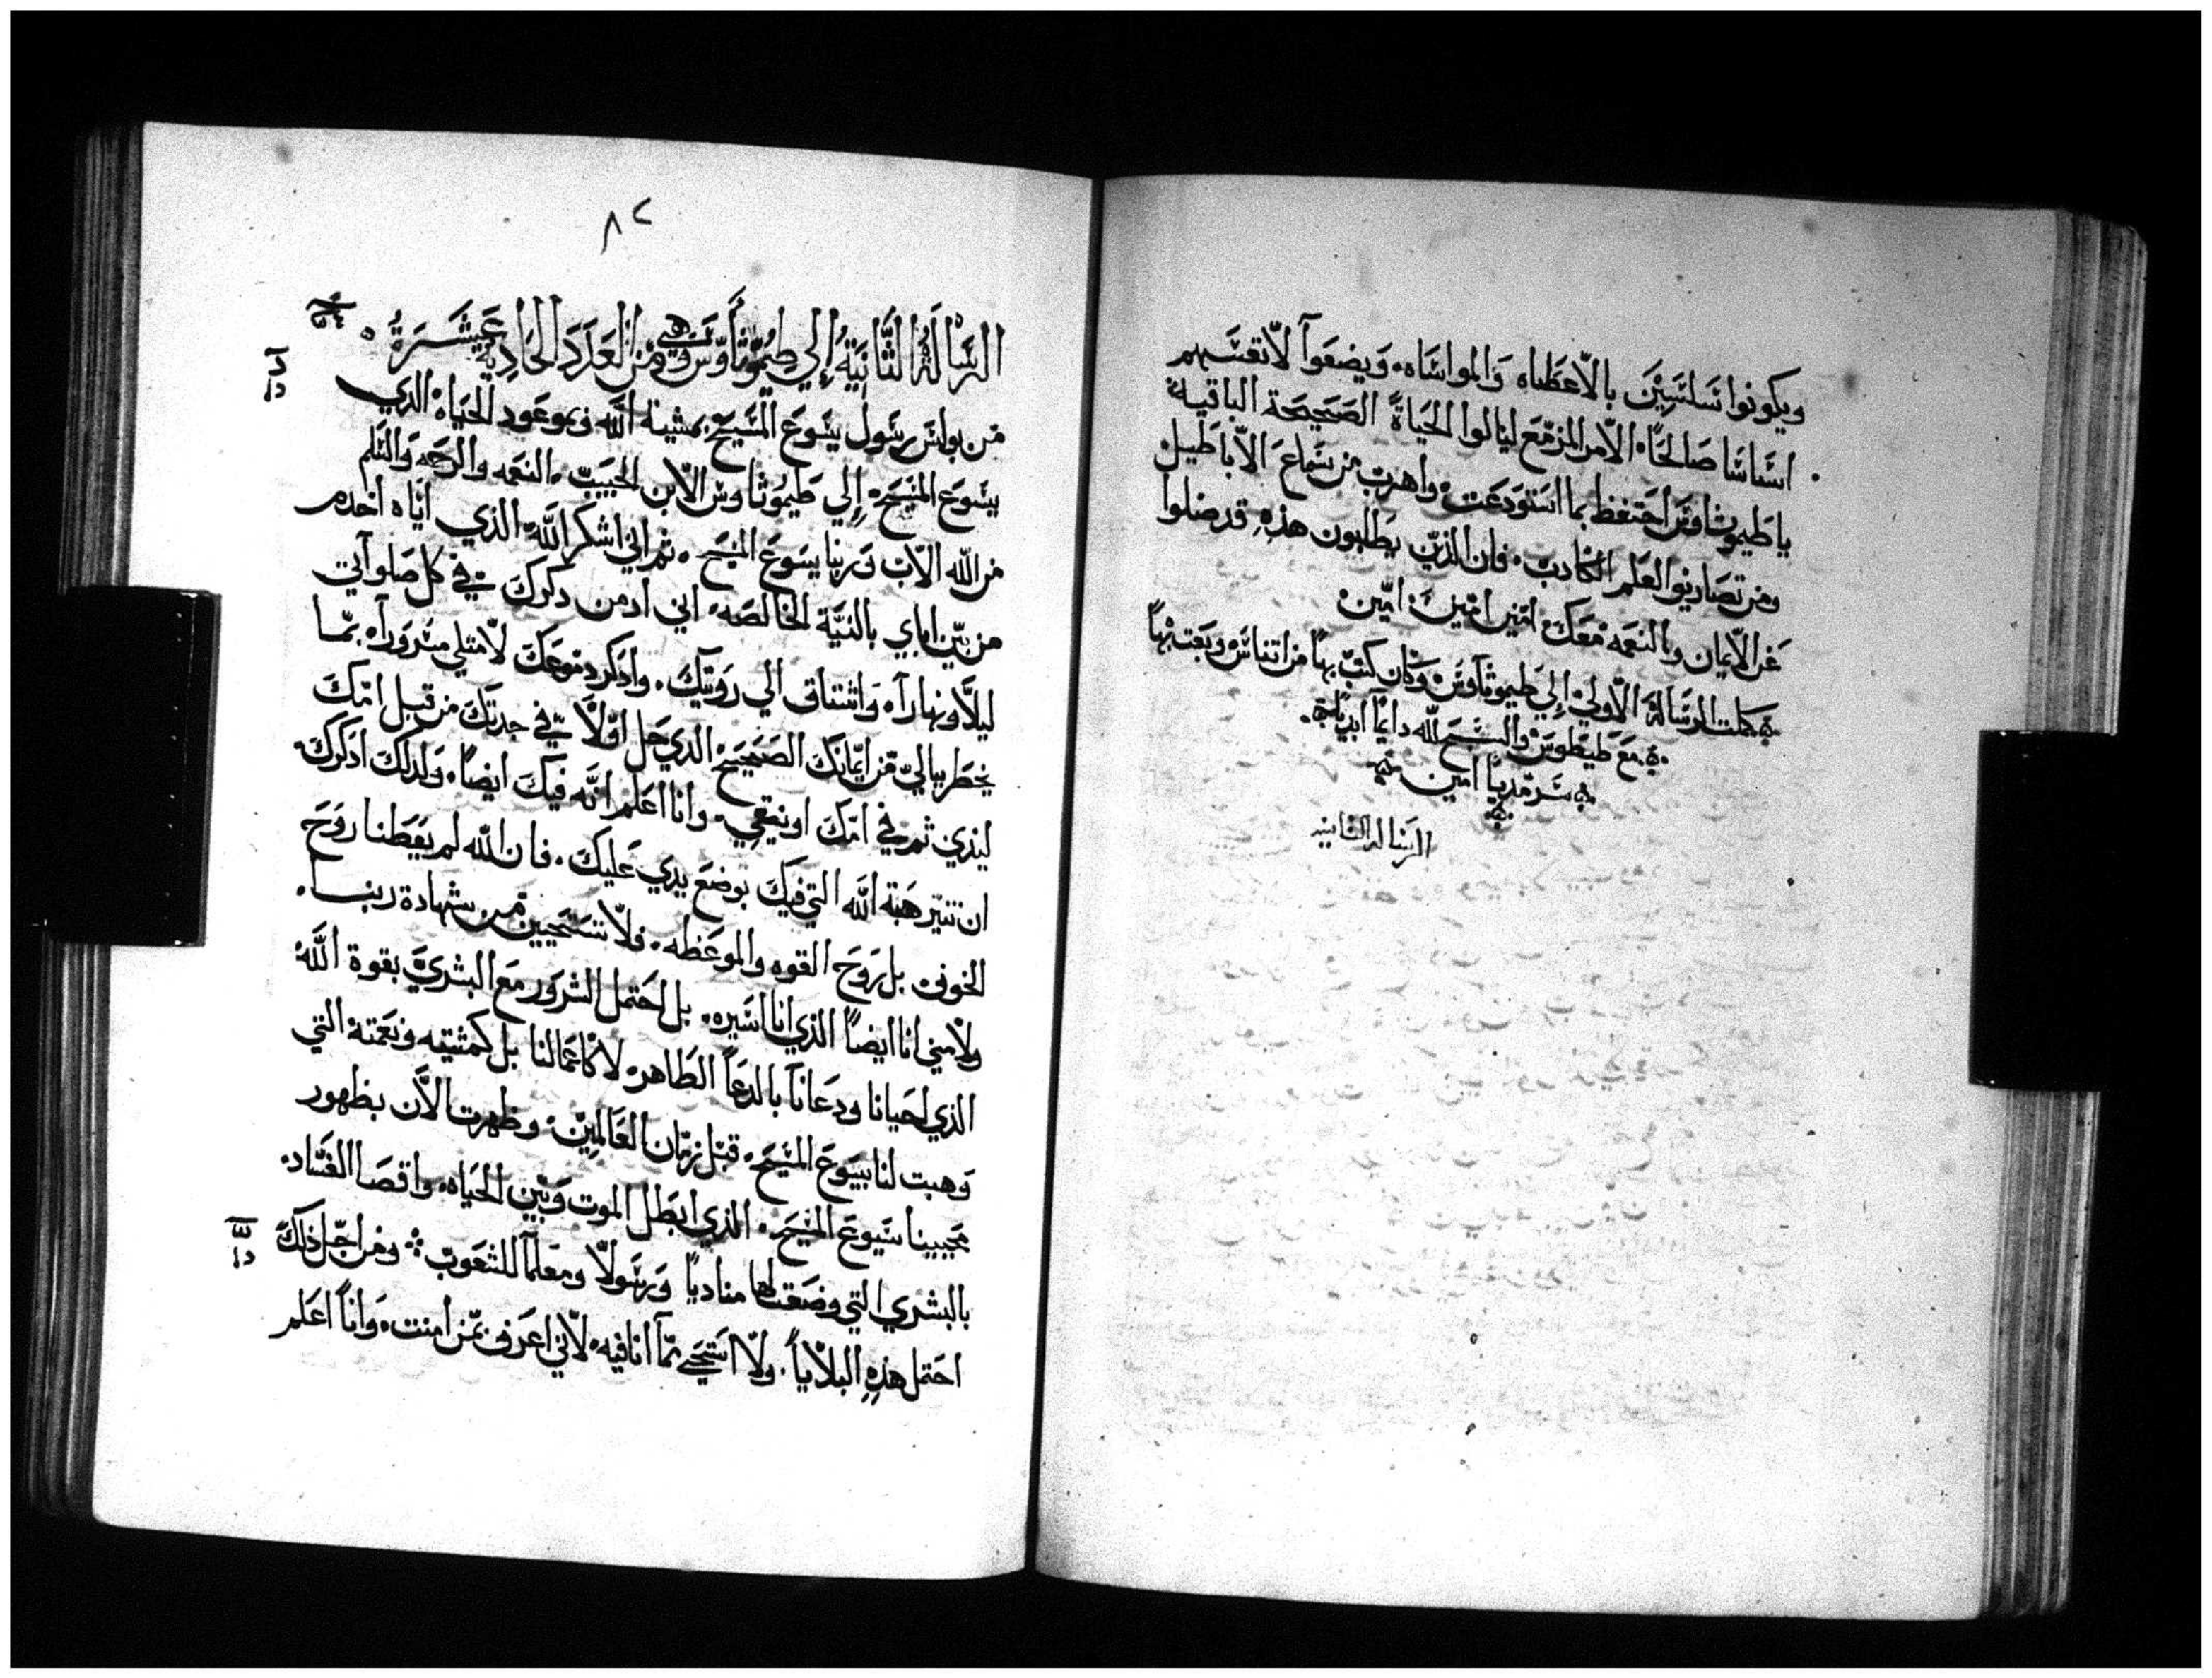 ويكونوا سلسين بالاعطاه والمواساه، ويضعوا لانفسهم
اساسا صالحاً، الامر المزمع لينالوا الحياة الصحيحة الباقية
ياطيموثاوس احتفظ بما استودعت، واهرب من سماع الاباطيل
ومن تصاريف العلم الكادب، فان الذين يطلبون هذه قد ضلوا
عن الايمان والنعمه معك، امين امين امين
كملت الرسالة الاولي إلي طيموثاوس وكان كتب بها من اتناس وبعت بها
مع طيطوس والسبح لله دايماً ابدياً
سرمدياً امين
الرساله الثانيه
٨٢
الرسالة الثانية إلي طيموثاوس وهي من العدد الحادية عشرة
من بولس رسول يسوع المسيح بمشية الله وبموعود الحياه الذي
بيسوع المسيح، إلي طيموثاوس الابن الحبيب، النعمه والرحمه والسلم
من الله الاب وربنا يسوع المسيح، ثم اني اشكر الله الذي اياه اخدم
من بين اباي بالنية الخالصه، اني ادمن دكرك في كل صلوآتي
ليلاً ونهاراً، واشتاق الي رويتك، وادكر دموعك لامتلي سروراً، بما
يخطر ببالي من ايمانك الصحيح الدي حل اولاً في جدتك من قبل امك
ليدي ثم في امك اونيقي، وانا اعلم انه فيك ايضاً، ولدلك ادكرك
ان تتير هبة الله التي فيك بوضع يدي عليك، فان الله لم يعطنا روح
الخوف بل روح القوه والموعظه، فلا تستحيين من شهادة ربنا
ولا مني انا ايضاً الذي انا اسيره، بل احتمل الشرور مع البشري بقوة الله
الذي احيانا ودعانا بالدعا الطاهر، لا كاعمالنا بل كمشيته ونعمته التي
وهبت لنا بيسوع المسيح، قبل زمان العالمين، وظهرت الان بظهور
محيينا يسوع المسيح، الذي ابطل الموت وبين الحياه، واقصا الفساد
بالبشري التي وضعت لها منادياً ورسولاً ومعلماً للشعوب ❖ ومن اجل ذلك
احتمل هذه البلايا، ولا استحي مما انا فيه، لاني اعرف بمن امنت، وانا اعلم